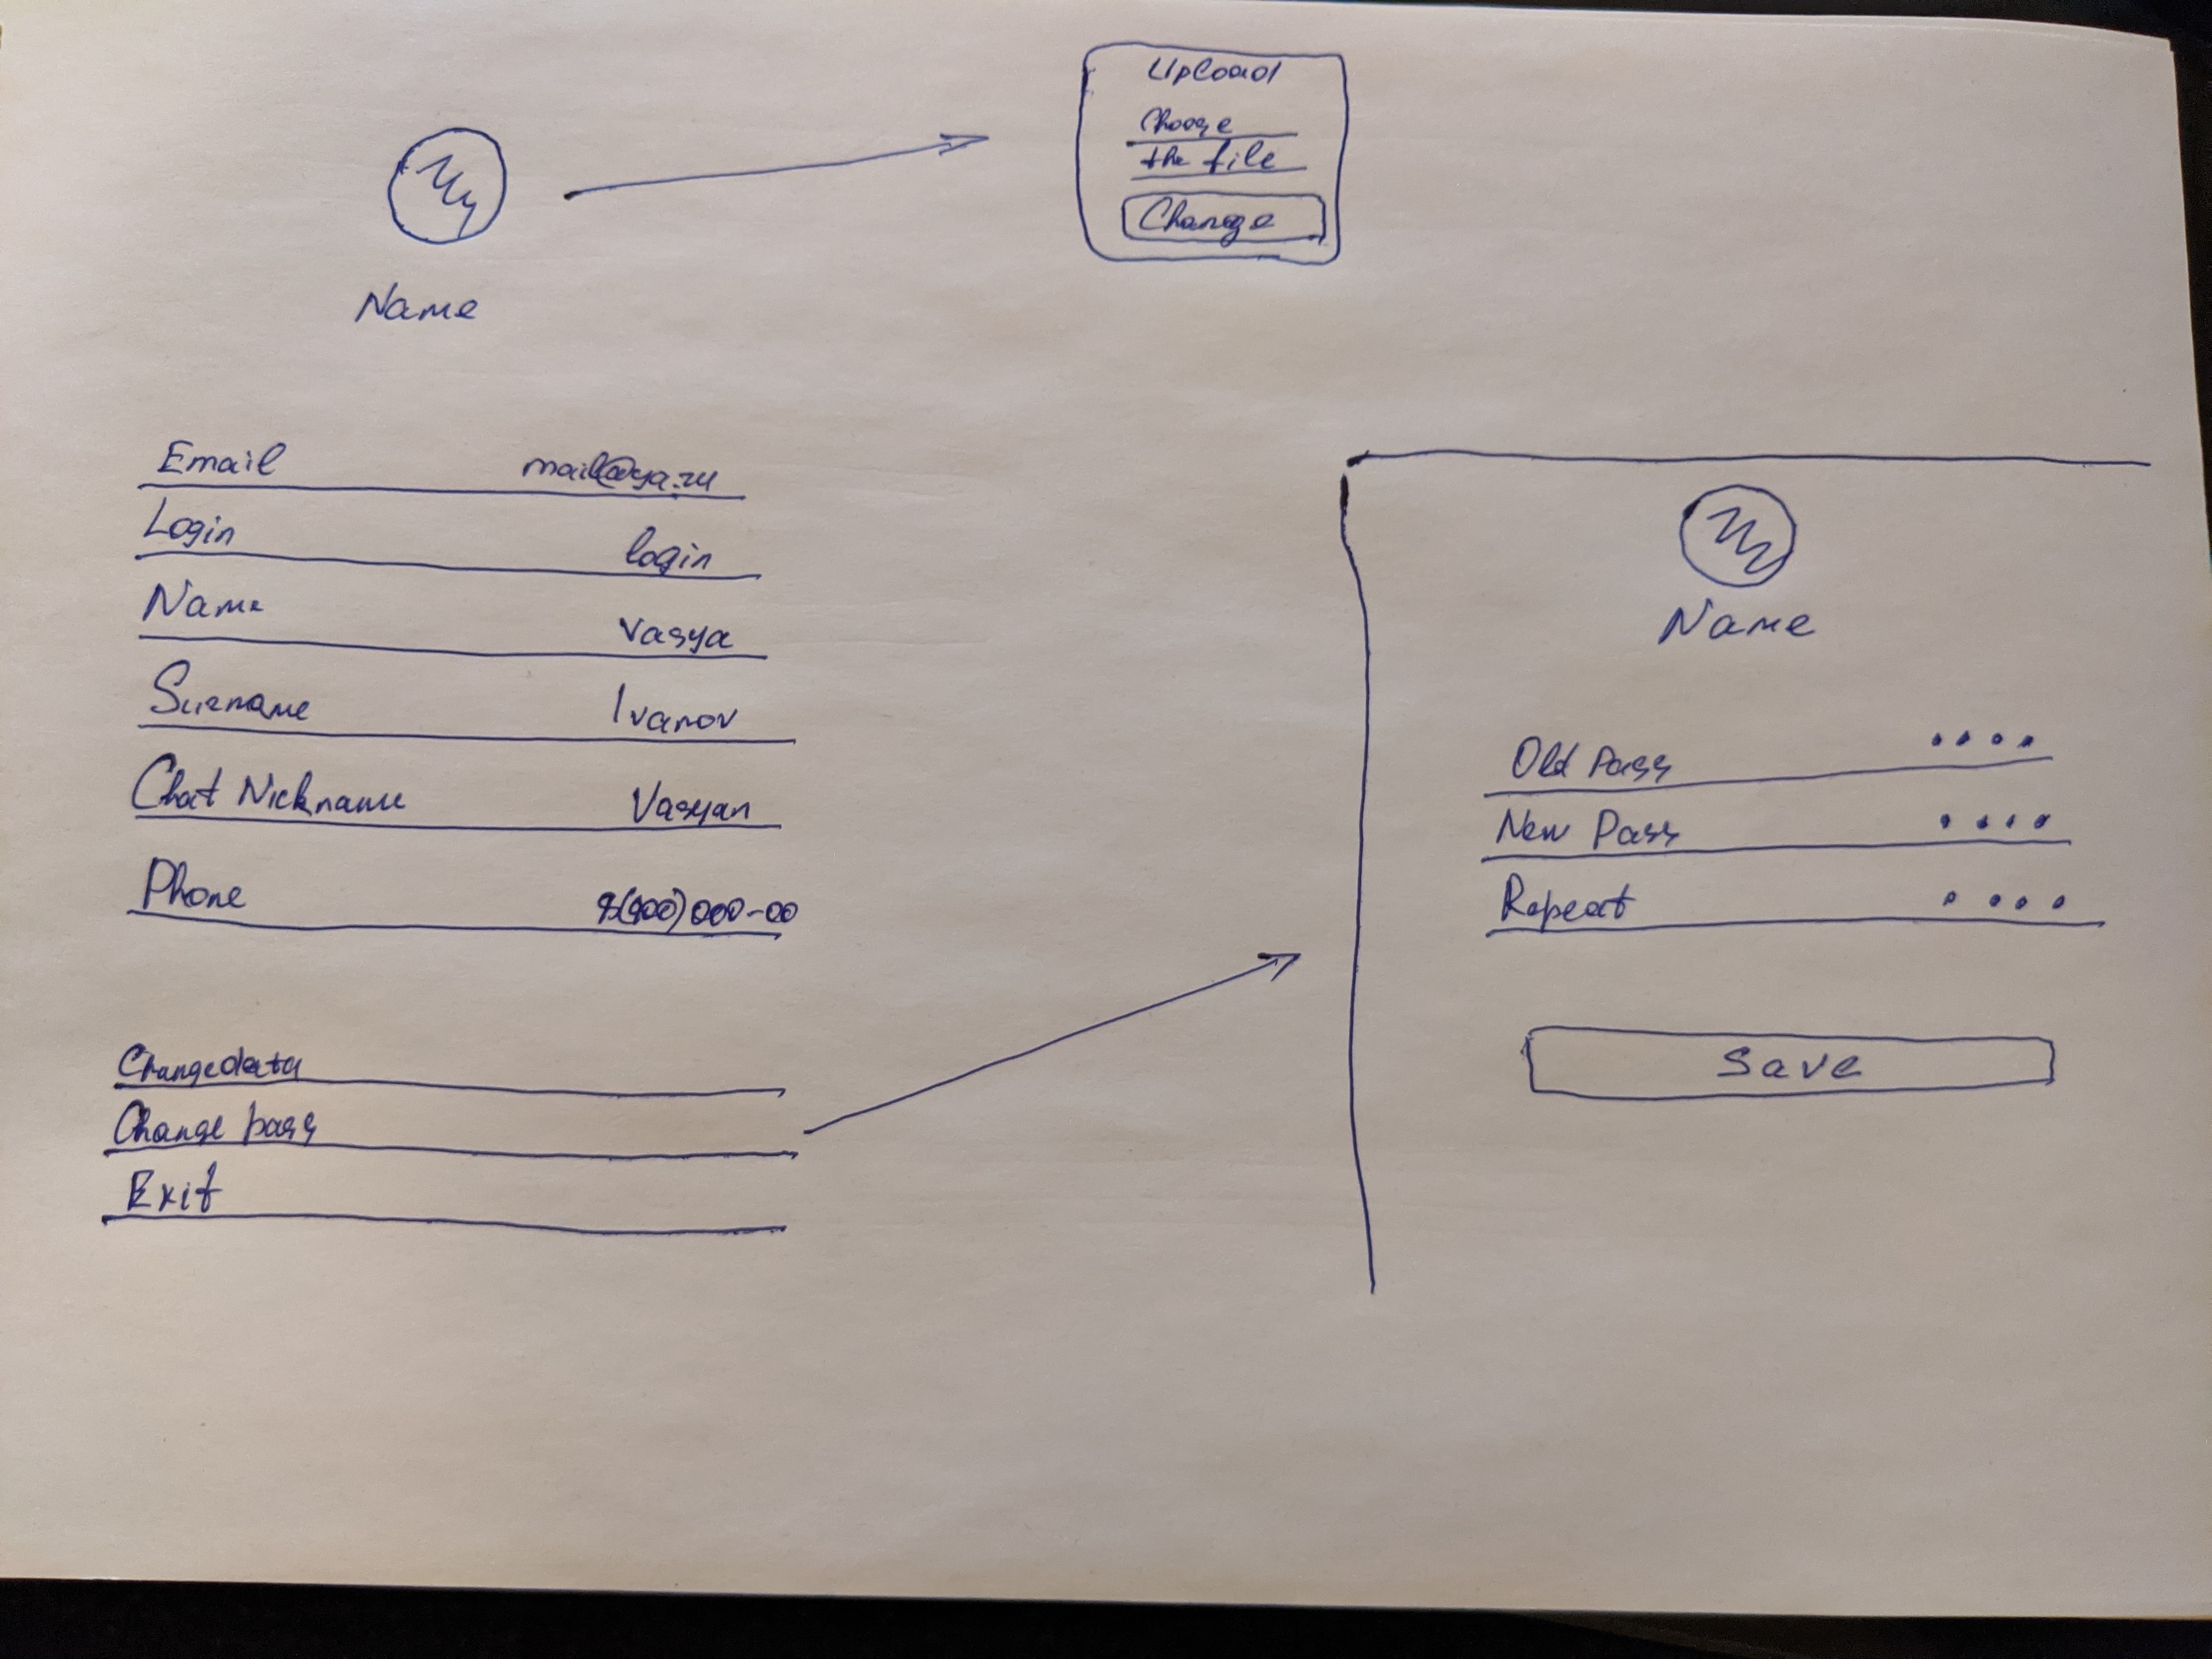 Upload
Choose
the file
Change
Name
Email mail@ya.ru
Login login
Name Vasya
Surname Ivanov
Chat Nickname Vasyan
Phone 8(900)000-00
Changedata
Change pass
Exit
Name
Old Pass ....
New Pass ....
Repeat ....
Save